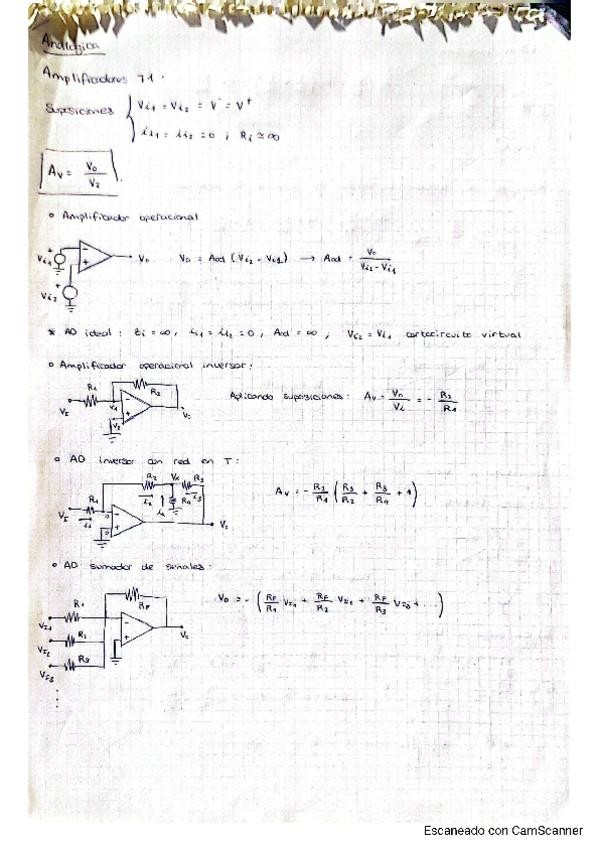 Analógica
Amplificadores 71.
Suposiciones { Vi1 = Vi2 = V⁻ = V⁺
ii1 = ii2 = 0 ; Ri ≃ ∞
Av = Vo / VI
o Amplificador operacional
Vi1 - + Vo Vo = Aod (Vi2 - Vi1) → Aod = Vo / (Vi2 - Vi1)
Vi2
* AO ideal : Zi = ∞, ii1 = ii2 = 0, Ad = ∞, Vi2 = Vi1 cortocircuito virtual
o Amplificador operacional inversor:
VI R1 V1 R2 - + V2 Vo Aplicando suposiciones: Av = Vo / Vi = - R2 / R1
o AO inversor con red en T:
VI R1 i1 R2 i2 Vx R4 i4 R3 i3 0 0 - + Vo Av = - R2/R1 ( R3/R2 + R3/R4 + 1 )
o AO sumador de señales:
VI1 R1 RF - + Vo Vo = - ( RF/R1 VI1 + RF/R2 VI2 + RF/R3 VI3 + ... )
VI2 R2
VI3 R3
Escaneado con CamScanner